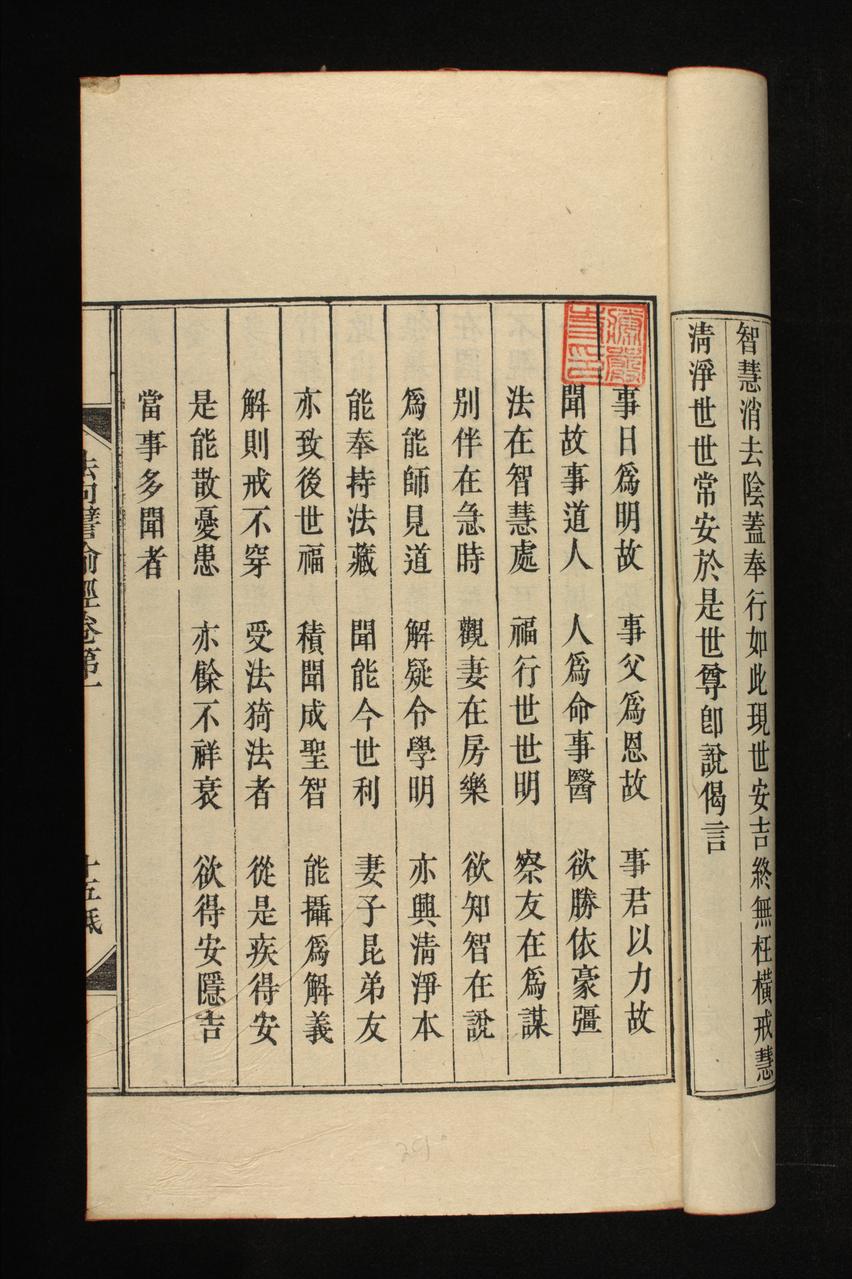 智慧消去陰蓋奉行如此現世安吉終無枉橫戒慧
清淨世世常安於是世尊卽說偈言
事日爲明故 事父爲恩故 事君以力故
聞故事道人 人爲命事醫 欲勝依豪彊
法在智慧處 福行世世明 察友在爲謀
別伴在急時 觀妻在房樂 欲知智在說
爲能師見道 解疑令學明 亦興清淨本
能奉持法藏 聞能今世利 妻子昆弟友
亦致後世福 積聞成聖智 能攝爲解義
解則戒不穿 受法猗法者 從是疾得安
是能散憂患 亦除不祥衰 欲得安隱吉
當事多聞者
法句譬喻經卷第一
十五紙
29